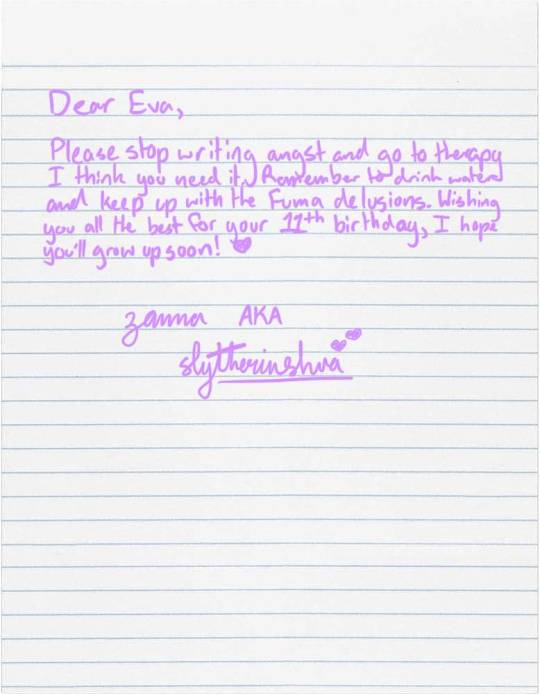 Dear Eva,
Please stop writing angst and go to therapy
I think you need it. Remember to drink water
and keep up with the Fuma delusions. Wishing
you all the best for your 11th birthday, I hope
you'll grow up soon!
zanna AKA
slytherinshua